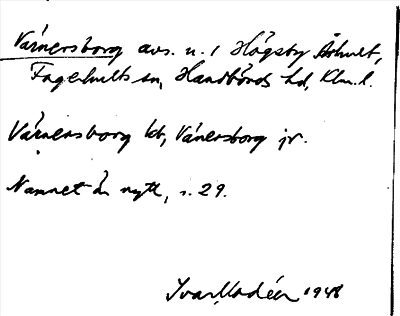 Värnersborg avs. u. 1 Högsby Århult,
Fagerhults sn, Handbörds hd, Klm. l.
Värnersborg kb, Vänersborg jr.
Namnet är nytt, s. 29.
Ivar Modéer 1946